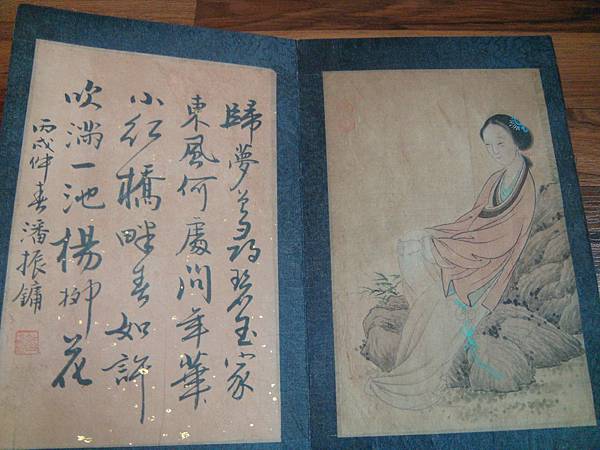 歸夢碧玉家
東風何處問年華
小紅橋畔春如許
吹滿一池楊柳花
丙戌仲春潘振鏞